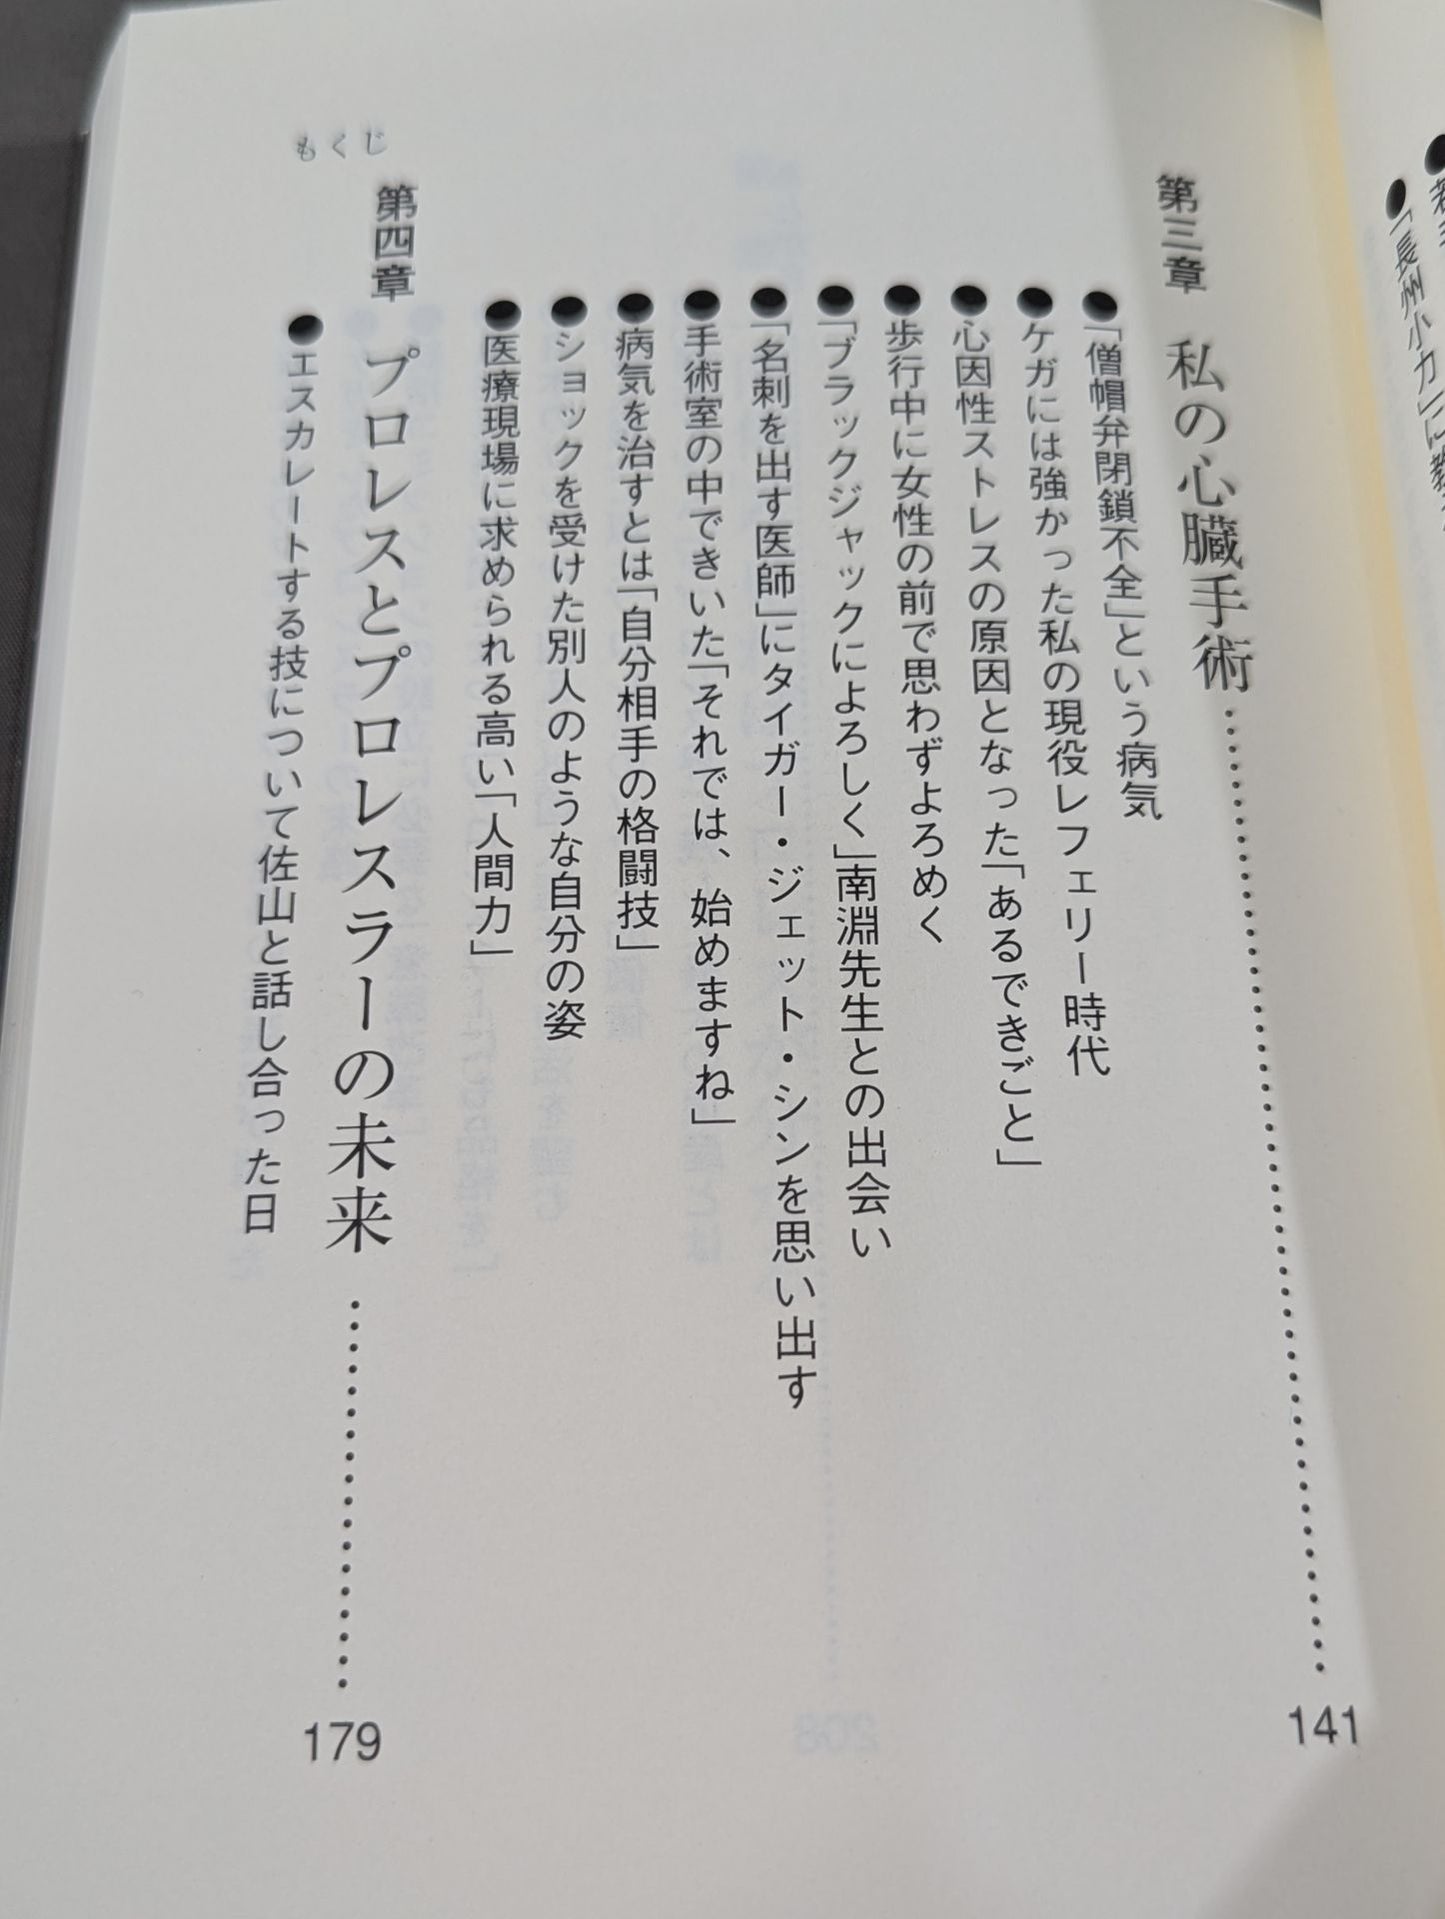 「長州小力」に教
もくじ
第三章 私の心臓手術…………141
●「僧帽弁閉鎖不全」という病気
●ケガには強かった私の現役レフェリー時代
●心因性ストレスの原因となった「あるできごと」
●歩行中に女性の前で思わずよろめく
●「ブラックジャックによろしく」南淵先生との出会い
●「名刺を出す医師」にタイガー・ジェット・シンを思い出す
●手術室の中できいた「それでは、始めますね」
●病気を治すとは「自分相手の格闘技」
●ショックを受けた別人のような自分の姿
●医療現場に求められる高い「人間力」
第四章 プロレスとプロレスラーの未来…………179
●エスカレートする技について佐山と話し合った日